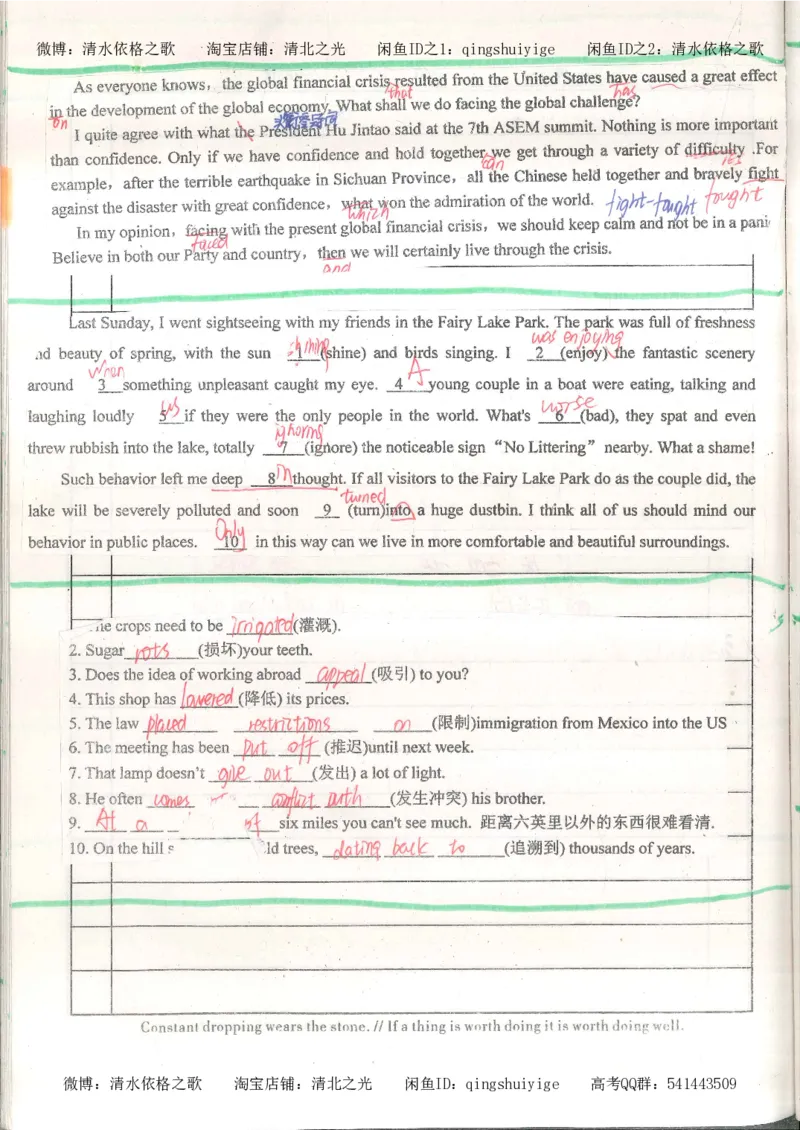 微博：清水依格之歌 淘宝店铺：清北之光 闲鱼ID之1：qingshuiyige 闲鱼ID之2：清水依格之歌
As everyone knows, the global financial crisis resulted from the United States have caused a great effect
that has
in the development of the global economy. What shall we do facing the global challenge?
on
I quite agree with what the President Hu Jintao said at the 7th ASEM summit. Nothing is more important
than confidence. Only if we have confidence and hold together we get through a variety of difficulty .For
can ies
example, after the terrible earthquake in Sichuan Province, all the Chinese held together and bravely fight
against the disaster with great confidence, what won the admiration of the world. fight-fought fought
which
In my opinion, facing with the present global financial crisis, we should keep calm and not be in a pani
faced
Believe in both our Party and country, then we will certainly live through the crisis.
and
Last Sunday, I went sightseeing with my friends in the Fairy Lake Park. The park was full of freshness
shining was enjoying
nd beauty of spring, with the sun 1 (shine) and birds singing. I 2 (enjoy) the fantastic scenery
when A
around 3 something unpleasant caught my eye. 4 young couple in a boat were eating, talking and
as worse
laughing loudly 5 if they were the only people in the world. What's 6 (bad), they spat and even
ignoring
threw rubbish into the lake, totally 7 (ignore) the noticeable sign “No Littering” nearby. What a shame!
Such behavior left me deep 8 in thought. If all visitors to the Fairy Lake Park do as the couple did, the
turned
lake will be severely polluted and soon 9 (turn)into a huge dustbin. I think all of us should mind our
Only
behavior in public places. 10 in this way can we live in more comfortable and beautiful surroundings.
he crops need to be irrigated(灌溉).
2. Sugar rots (损坏)your teeth.
3. Does the idea of working abroad appeal (吸引) to you?
4. This shop has lowered (降低) its prices.
5. The law placed restrictions on (限制)immigration from Mexico into the US
6. The meeting has been put off (推迟)until next week.
7. That lamp doesn't give out (发出) a lot of light.
8. He often comes conflict with (发生冲突) his brother.
9. At a of six miles you can't see much. 距离六英里以外的东西很难看清.
10. On the hill s ld trees, dating back to (追溯到) thousands of years.
Constant dropping wears the stone. // If a thing is worth doing it is worth doing well.
微博：清水依格之歌 淘宝店铺：清北之光 闲鱼ID：qingshuiyige 高考QQ群：541443509